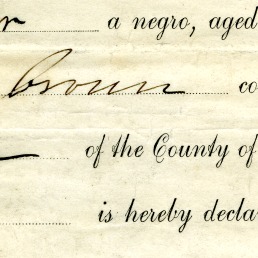 a negro, aged
Brown co
of the County of
is hereby decla